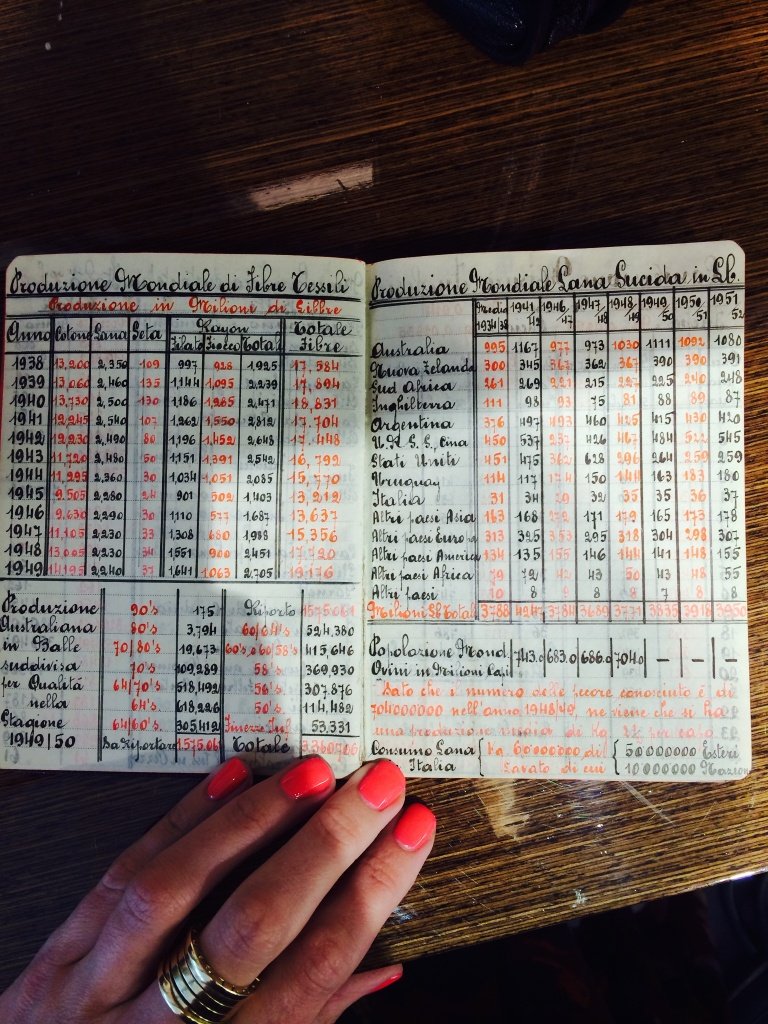 Produzione Mondiale di Fibre Tessili
Produzione in Milioni di Libbre
Anno Cotone Lana Seta Rayon Totale
Filato Fiocco Totale Fibre
1938 13,200 2,350 109 997 928 1,925 17,584
1939 13,060 2,460 135 1,144 1,095 2,239 17,894
1940 13,730 2,500 130 1,186 1,285 2,471 18,831
1941 12,245 2,540 107 1,262 1,550 2,812 17,704
1942 12,230 2,490 80 1,196 1,452 2,648 17,448
1943 11,720 2,480 50 1,151 1,391 2,542 16,792
1944 11,295 2,360 30 1,034 1,051 2,085 15,770
1945 9,505 2,280 24 901 502 1,403 13,212
1946 9,630 2,290 30 1,110 577 1,687 13,637
1947 11,105 2,230 33 1,308 680 1,988 15,356
1948 13,005 2,230 34 1,551 900 2,451 17,720
1949 14,195 2,240 37 1,641 1,063 2,705 19,176
Produzione 90's 175 Riporto 1.575.061
Australiana 80's 3,794 60/64's 524,380
in Balle 70/80's 19,673 60's e 60/58's 415,646
suddivisa 70's 109,289 58's 369,930
per Qualità 64/70's 518,492 56's 307,876
nella 64's 618,226 50's 114,482
Stagione 64/60's 305,412 53,331
1949/50 Da Riportare 1.575.061 Totale
Produzione Mondiale Lana Sucida in Lb.
Media 1934/38 1941/42 1946/47 1947/48 1948/49 1949/50 1950/51 1951/52
Australia 995 1167 977 973 1030 1111 1092 1080
Nuova Zelanda 300 345 367 362 367 390 390 391
Sud Africa 261 269 221 215 227 225 240 248
Inghilterra 111 98 93 75 81 88 89 87
Argentina 376 497 493 460 425 415 430 420
U.R.S.S., Cina 450 537 237 426 467 484 522 545
Stati Uniti 451 475 362 628 296 264 259 259
Uruguay 114 117 174 150 144 163 183 180
Italia 31 34 29 32 35 35 36 37
Altri paesi Asia 163 168 172 171 179 165 173 178
Altri paesi Europa 313 325 353 295 318 304 298 307
Altri paesi America 134 135 155 146 144 141 148 155
Altri paesi Africa 79 72 42 43 50 43 48 55
Altri paesi 10 8 9 8 8 7 8 8
Milioni Lb Totali 3788 4247 3784 3689 3771 3835 3918 3950
Popolazione Mond. 743.0 683.0 686.0 704.0 — — —
Ovini in Milioni Capi
Dato che il numero delle pecore conosciuto è di
704000000 nell'anno 1948/49, ne viene che si ha
una produzione media di Kg. per capo
Consumo Lana { Kg. 60000000 di { 50000000 Esteri
Italia lavato di cui 10000000 Nazion